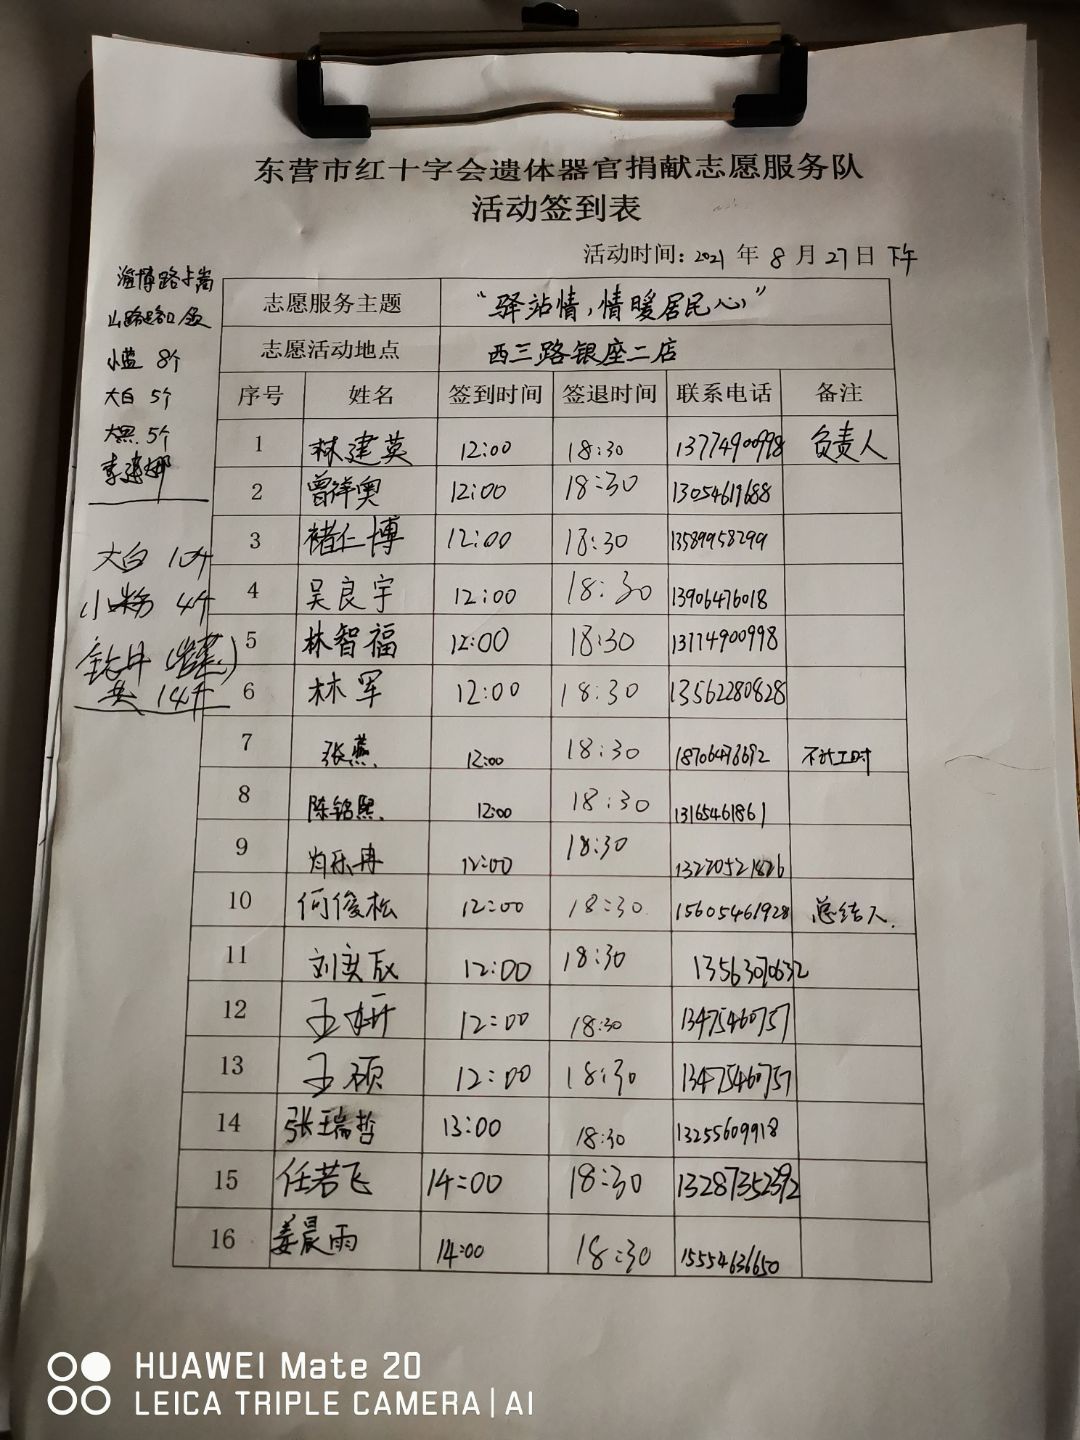 东营市红十字会遗体器官捐献志愿服务队
活动签到表
活动时间: 2021 年 8 月 27 日 下午
志愿服务主题 “驿站情,情暖居民心”
志愿活动地点 西三路银座二店
序号 姓名 签到时间 签退时间 联系电话 备注
1 林建英 12:00 18:30 13774900998 负责人
2 曾祥奥 12:00 18:30 13054619688
3 褚仁博 12:00 18:30 13589958299
4 吴良宇 12:00 18:30 13906476018
5 林智福 12:00 18:30 13774900998
6 林军 12:00 18:30 13562280828
7 张燕 12:00 18:30 18706473692 不计工时
8 陈铭熙 12:00 18:30 13165461861
9 肖乐冉 12:00 18:30 13220521826
10 何俊松 12:00 18:30 15605461928 总结人
11 刘奕辰 12:00 18:30 13563070632
12 王妍 12:00 18:30 13475460757
13 王硕 12:00 18:30 13475460757
14 张瑞哲 13:00 18:30 13255609918
15 任若飞 14:00 18:30 13287352392
16 姜晨雨 14:00 18:30 15554636650
淄博路
8个
大白 5个
大黑 5个
大白 10个
小粉 4个
共 14个
HUAWEI Mate 20
LEICA TRIPLE CAMERA | AI